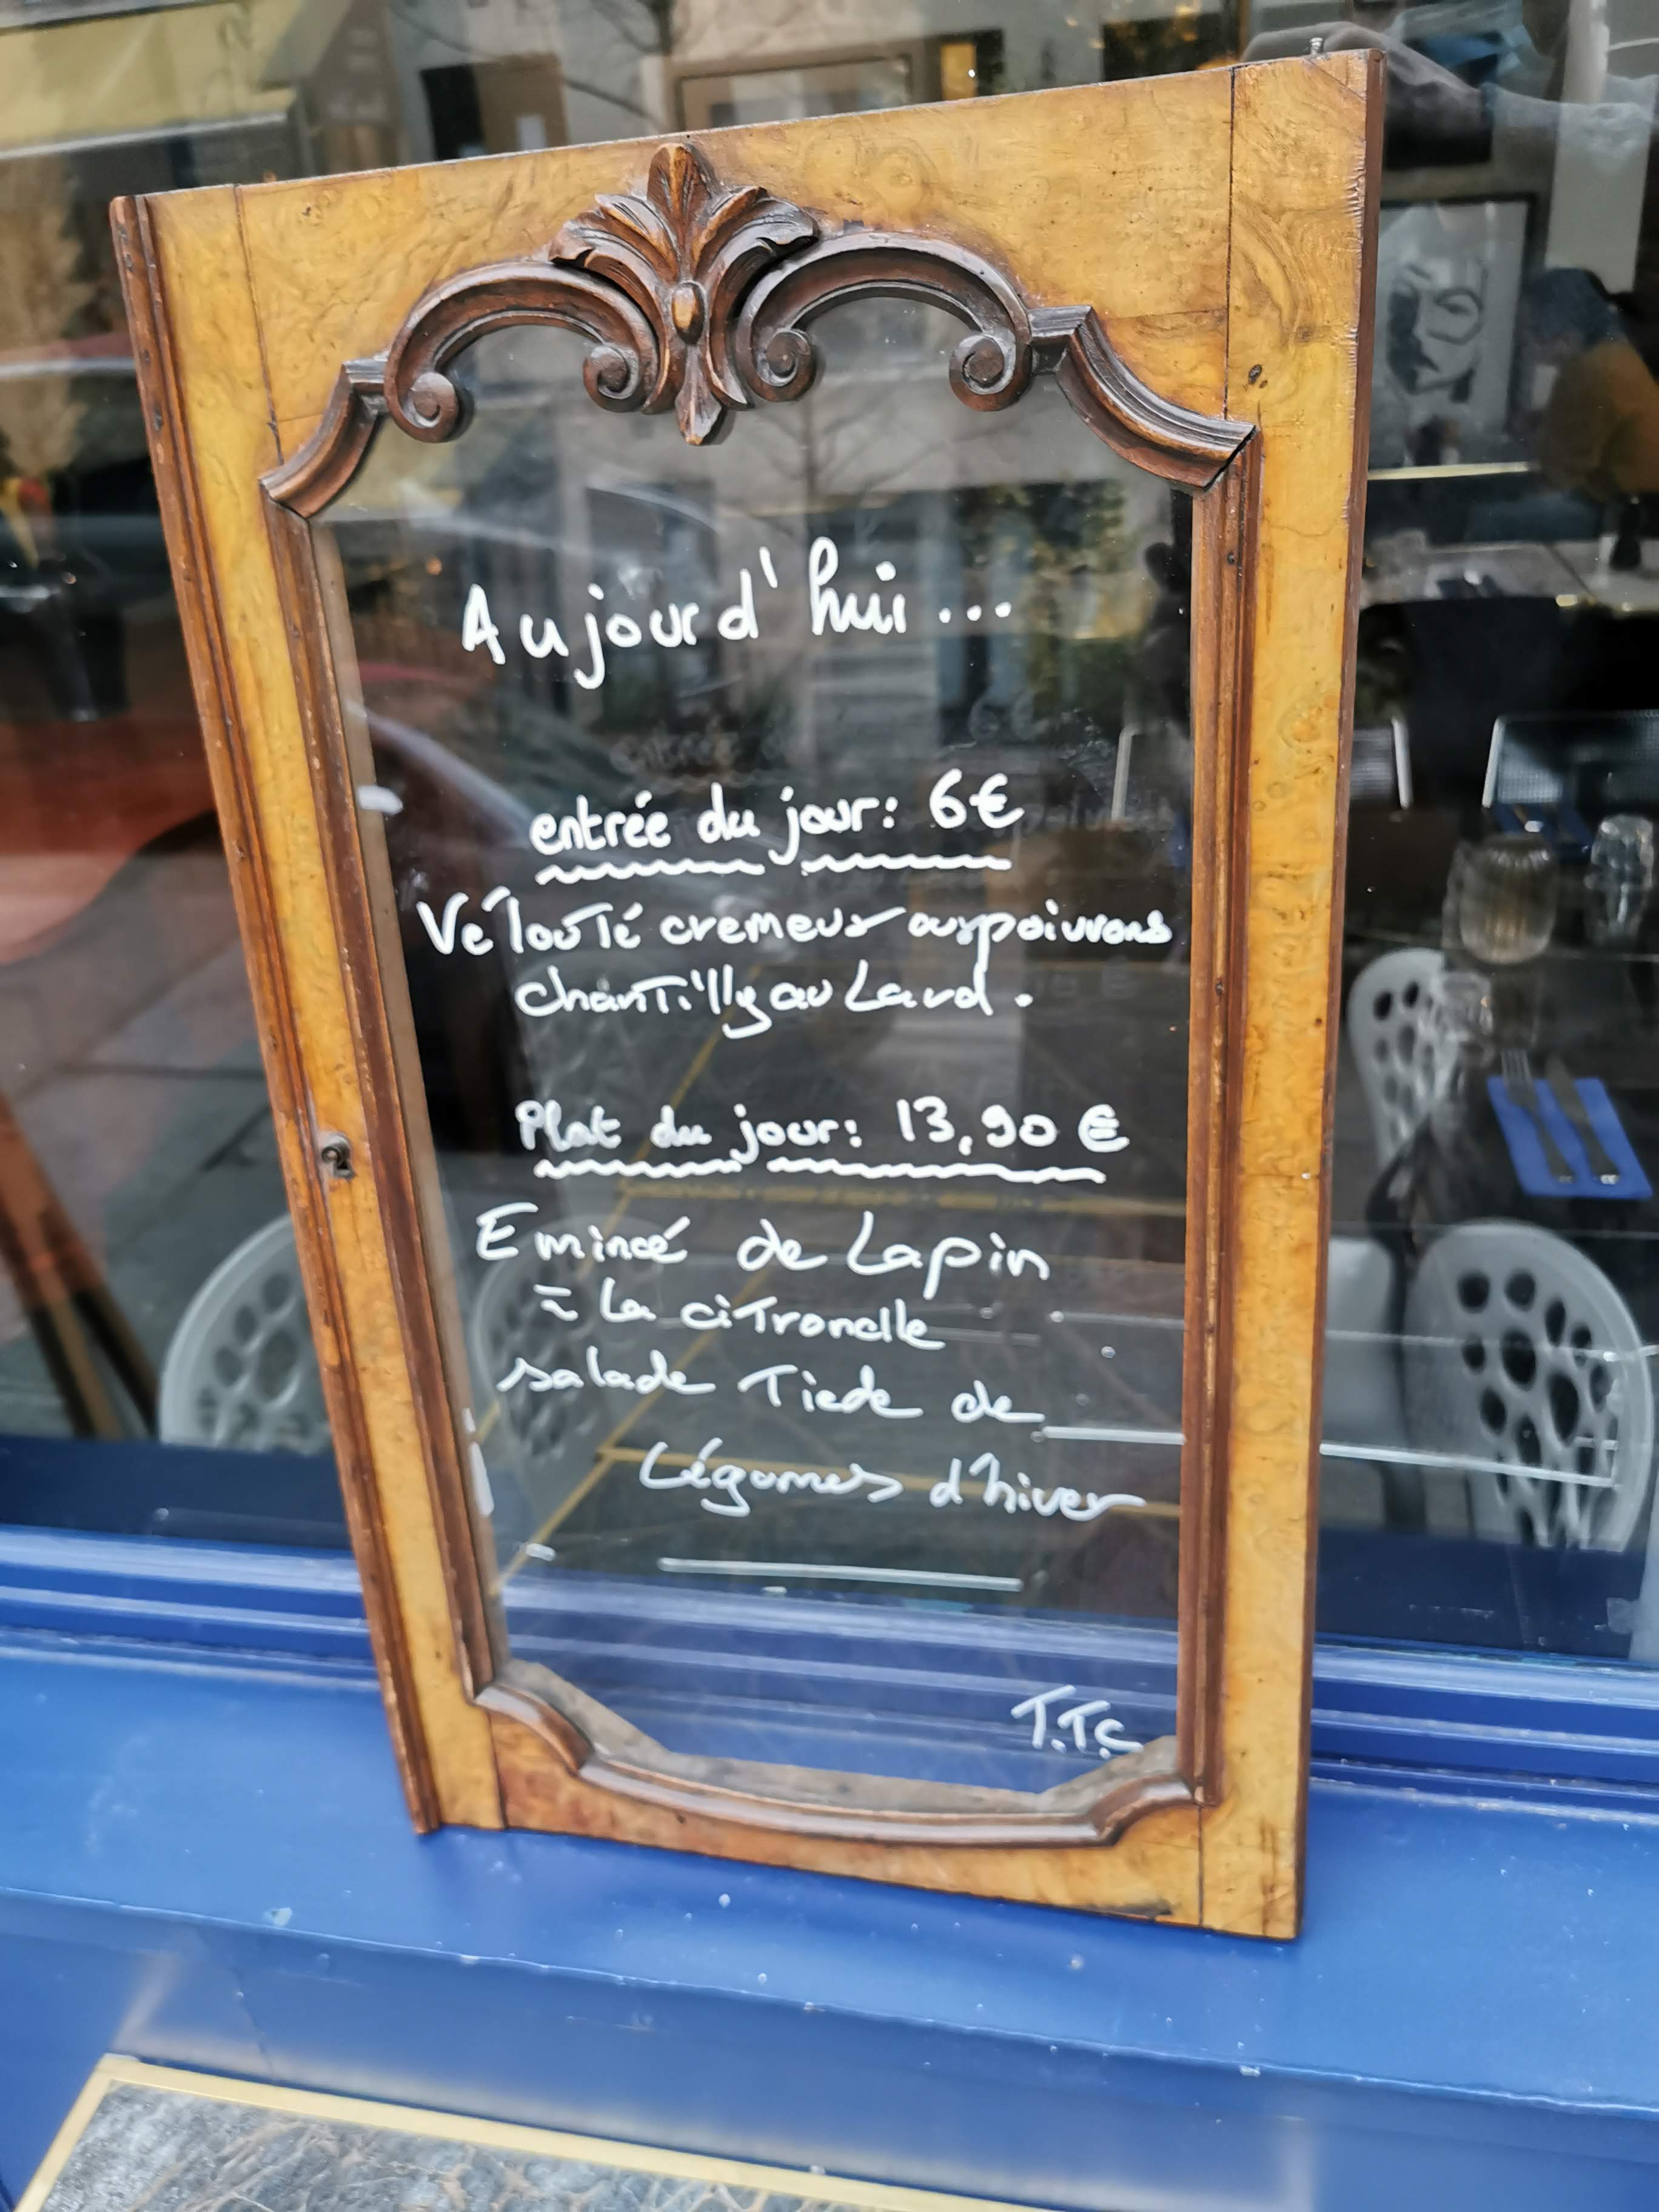 Aujourd'hui...
entrée du jour: 6€
Vélouté cremeux aux poivrons
chantilly au Lard.
Plat du jour: 13,90 €
Emincé de Lapin
à la citronelle
salade Tiede de
Légumes d'hiver
T.T.C